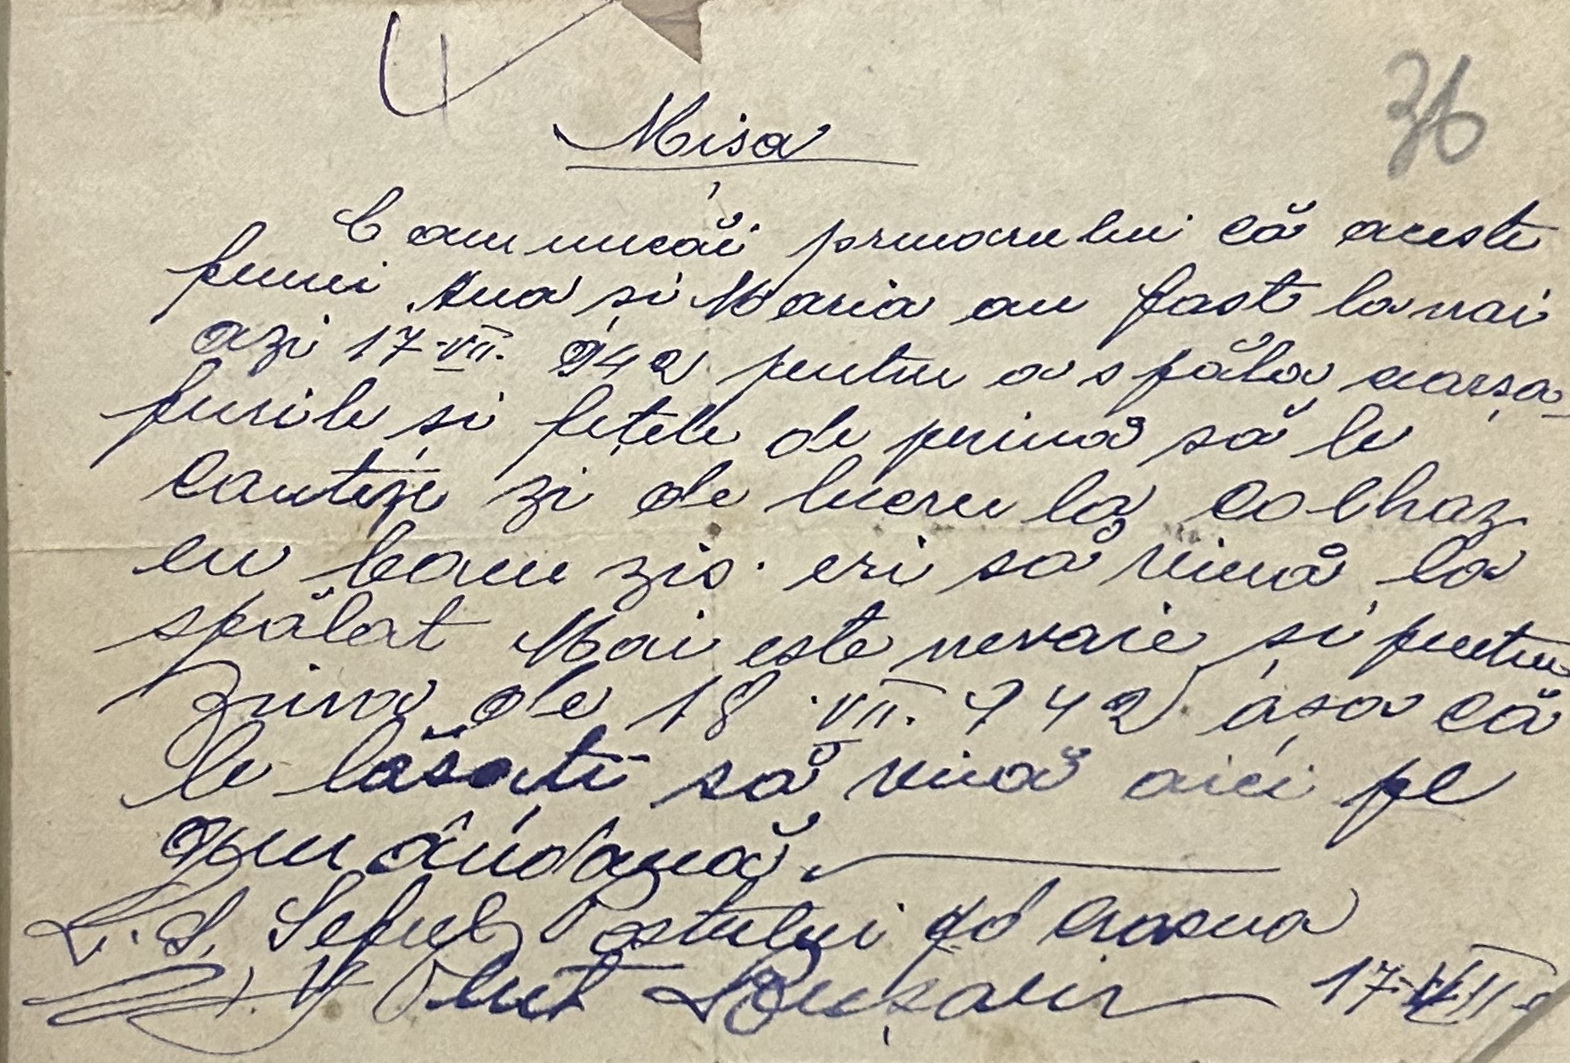 36
Misa
Comunicăi primarului că aceste
femei Ana si Maria au fost la noi
azi 17-VII. 942 pentru a spăla cearșa-
furile si fețele de perină să le
conteze zi de lucru la colhoz
eu leam zis eri să vină la
spălat Mai este nevoie si pentru
ziua de 18 VII. 942 așa că
le lăsati să vină aici pe
L.S. Seful Postului Jd
Plut
17-VII